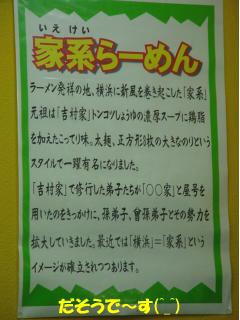 いえけい
家系らーめん
ラーメン発祥の地、横浜に新風を巻き起こした「家系」
元祖は「吉村家」トンコツしょうゆの濃厚スープに鶏脂
を加えたこってり味。太麺、正方形3枚の大きなのりという
スタイルで一躍有名になりました。
「吉村家」で修行した弟子たちが「○○家」と屋号を
用いたのをきっかけに、孫弟子、曾孫弟子とその勢力を
拡大していきました。最近では「横浜」=「家系」という
イメージが確立されつつあります。
だそうで〜す(^_^)